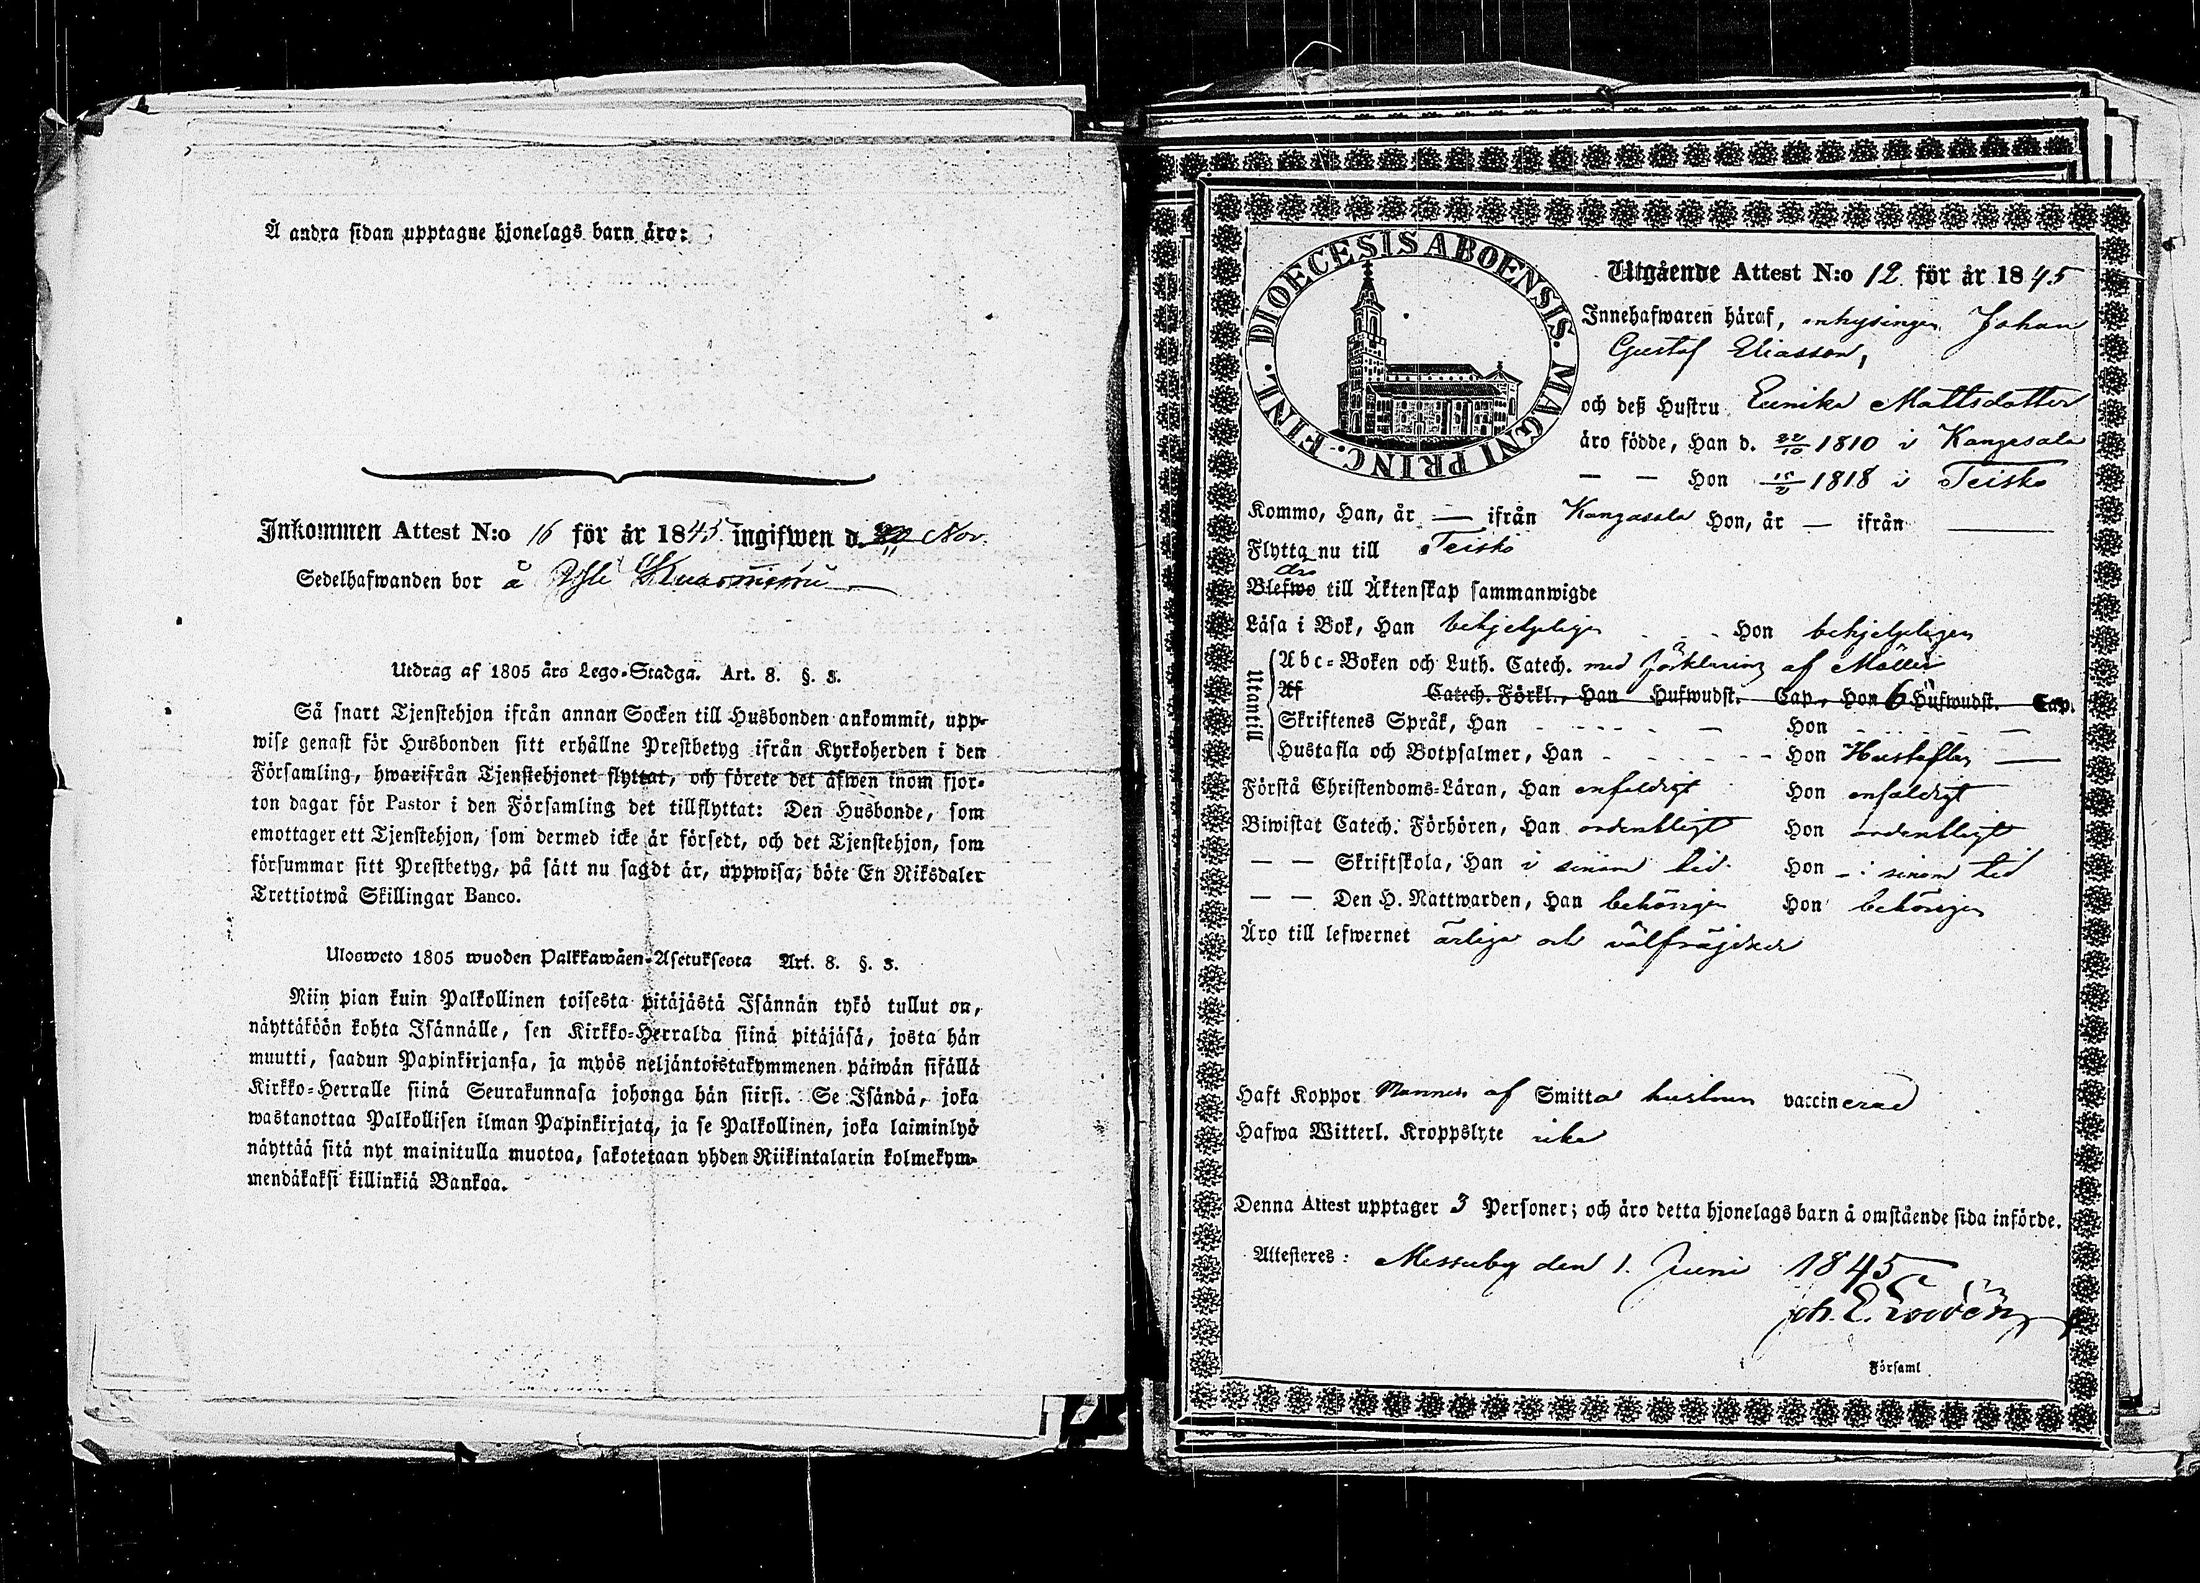 Å andra sidan upptagne hjonelags barn äro:
Inkommen Attest N:o 16 för år 1845 ingifwen d. Nov.
Sedelhafwanden bor å
Utdrag af 1805 års Lego-Stadga. Art. 8. §. 3.
Så snart Tjenstehjon ifrån annan Socken till Husbonden ankommit, upp-
wise genast för Husbonden sitt erhållne Prestbetyg ifrån Kyrkoherden i den
Församling, hwarifrån Tjenstehjonet flyttat, och förete det äfwen inom fjor-
ton dagar för Pastor i den Församling det tillflyttat: Den Husbonde, som
emottager ett Tjenstehjon, som dermed icke är försedt, och det Tjenstehjon, som
försummar sitt Prestbetyg, på sätt nu sagdt är, uppwisa, böte En Riksdaler
Trettiotwå Skillingar Banco.
Ulosweto 1805 wuoden Palkkawäen-Asetuksesta Art. 8. §. 3.
Niin pian kuin Palkollinen toisesta pitäjästä Isännän tykö tullut on,
näyttäköön kohta Isännälle, sen Kirkko-Herralda siinä pitäjäsä, josta hän
muutti, saadun Papinkirjansa, ja myös neljäntoistakymmenen päiwän sisällä
Kirkko-Herralle siinä Seurakunnasa johonga hän siirsi. Se Isändä, joka
wastanottaa Palkollisen ilman Papinkirjata, ja se Palkollinen, joka laiminlyö
näyttää sitä nyt mainitulla muotoa, sakotetaan yhden Riikintalarin kolmekym-
mendäkaksi killinkiä Bankoa.
DIOECESIS ABOENSIS. MAGNI PRINC. FINL.
Utgående Attest N:o 12 för år 1845
Innehafwaren häraf, inhysingen Johan
Gustaf Eliasson,
och deß Hustru Eunika Mattsdotter
äro födde, Han d. 22/10 1810 i Kangasala
— — Hon 1818 i Teisko
Kommo, Han, år — ifrån Kangasala Hon, år — ifrån —
Flytta nu till Teisko
äro
Blefwo till Äktenskap sammanwigde
Läsa i Bok, Han behjelpligen Hon behjelpligen
Utantill
Abc-Boken och Luth. Catech. med förklaring af Möller
Af Catech. Förkl., Han Hufwudst. Cap., Hon 6 Hufwudst. Cap.
Skriftenes Språk, Han — Hon —
Hustafla och Botpsalmer, Han - - - - - Hon Hustaflan —
Förstå Christendoms-Läran, Han enfaldigt Hon enfaldigt
Biwistat Catech. Förhören, Han ordentligt Hon ordentligt
— — Skriftskola, Han i sinom tid Hon i sinom tid
— — Den H. Nattwarden, Han behörigen Hon behörigen
Äro till lefwernet ärliga och välfräjdade
Haft Koppor Mannen af Smitta hustrun vaccinerad
Hafwa Witterl. Kroppslyte icke
Denna Attest upptager 3 Personer; och äro detta hjonelags barn å omstående sida införde.
Attesteres: Messuby den 1. Juni 1845
Församl